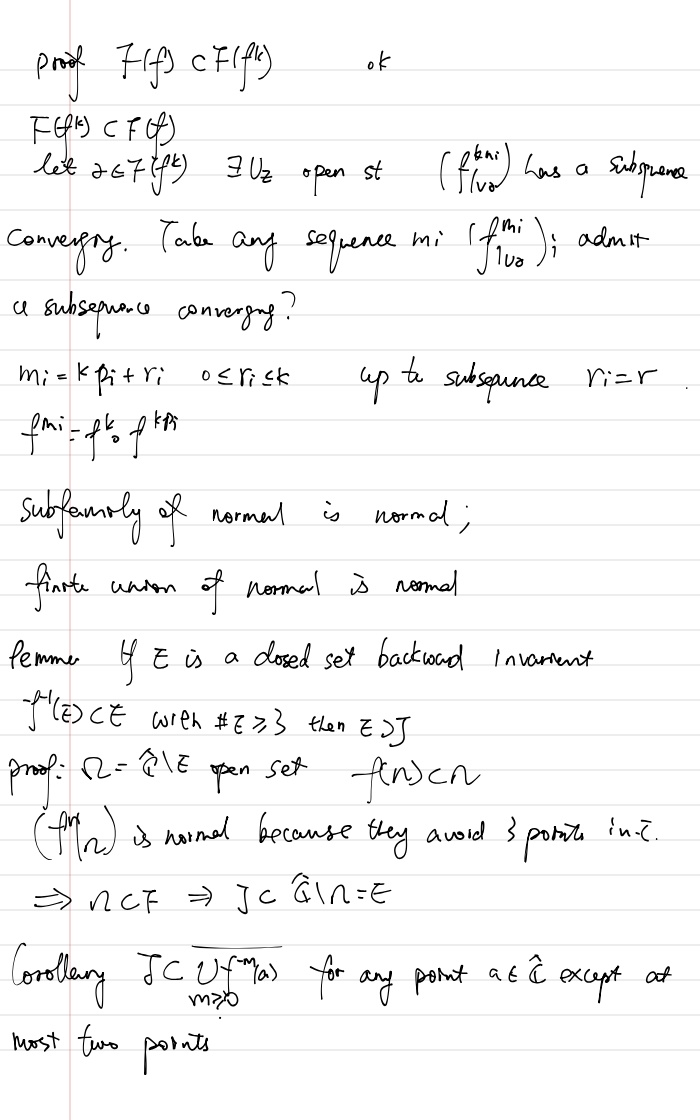 proof F(f) ⊂ F(f^k) ok
F(f^k) ⊂ F(f)
let z ∈ F(f^k) ∃ U_z open st (f^{kn_i}_{|U_z}) has a subsquence
convergng. Take any sequence m_i (f^{m_i}_{|U_z})_i admit
a subsequence convergng?
m_i = k p_i + r_i 0 ≤ r_i ≤ k up to subsqunce r_i = r
f^{m_i} = f^k ∘ f^{kp_i}
Subfamily of normal is normal;
finite union of normal is normal
lemma If E is a closed set backward invariant
f^{-1}(E) ⊂ E with #E ≥ 3 then E ⊃ J
proof: Ω = Ĉ \ E open set f(Ω) ⊂ Ω
(f^n|_Ω) is normal because they avoid 3 points in Ĉ.
⇒ Ω ⊂ F ⇒ J ⊂ Ĉ \ Ω = E
Corollary J ⊂ \overline{∪_{m≥0} f^{-m}(a)} for any point a ∈ Ĉ except at
most two points